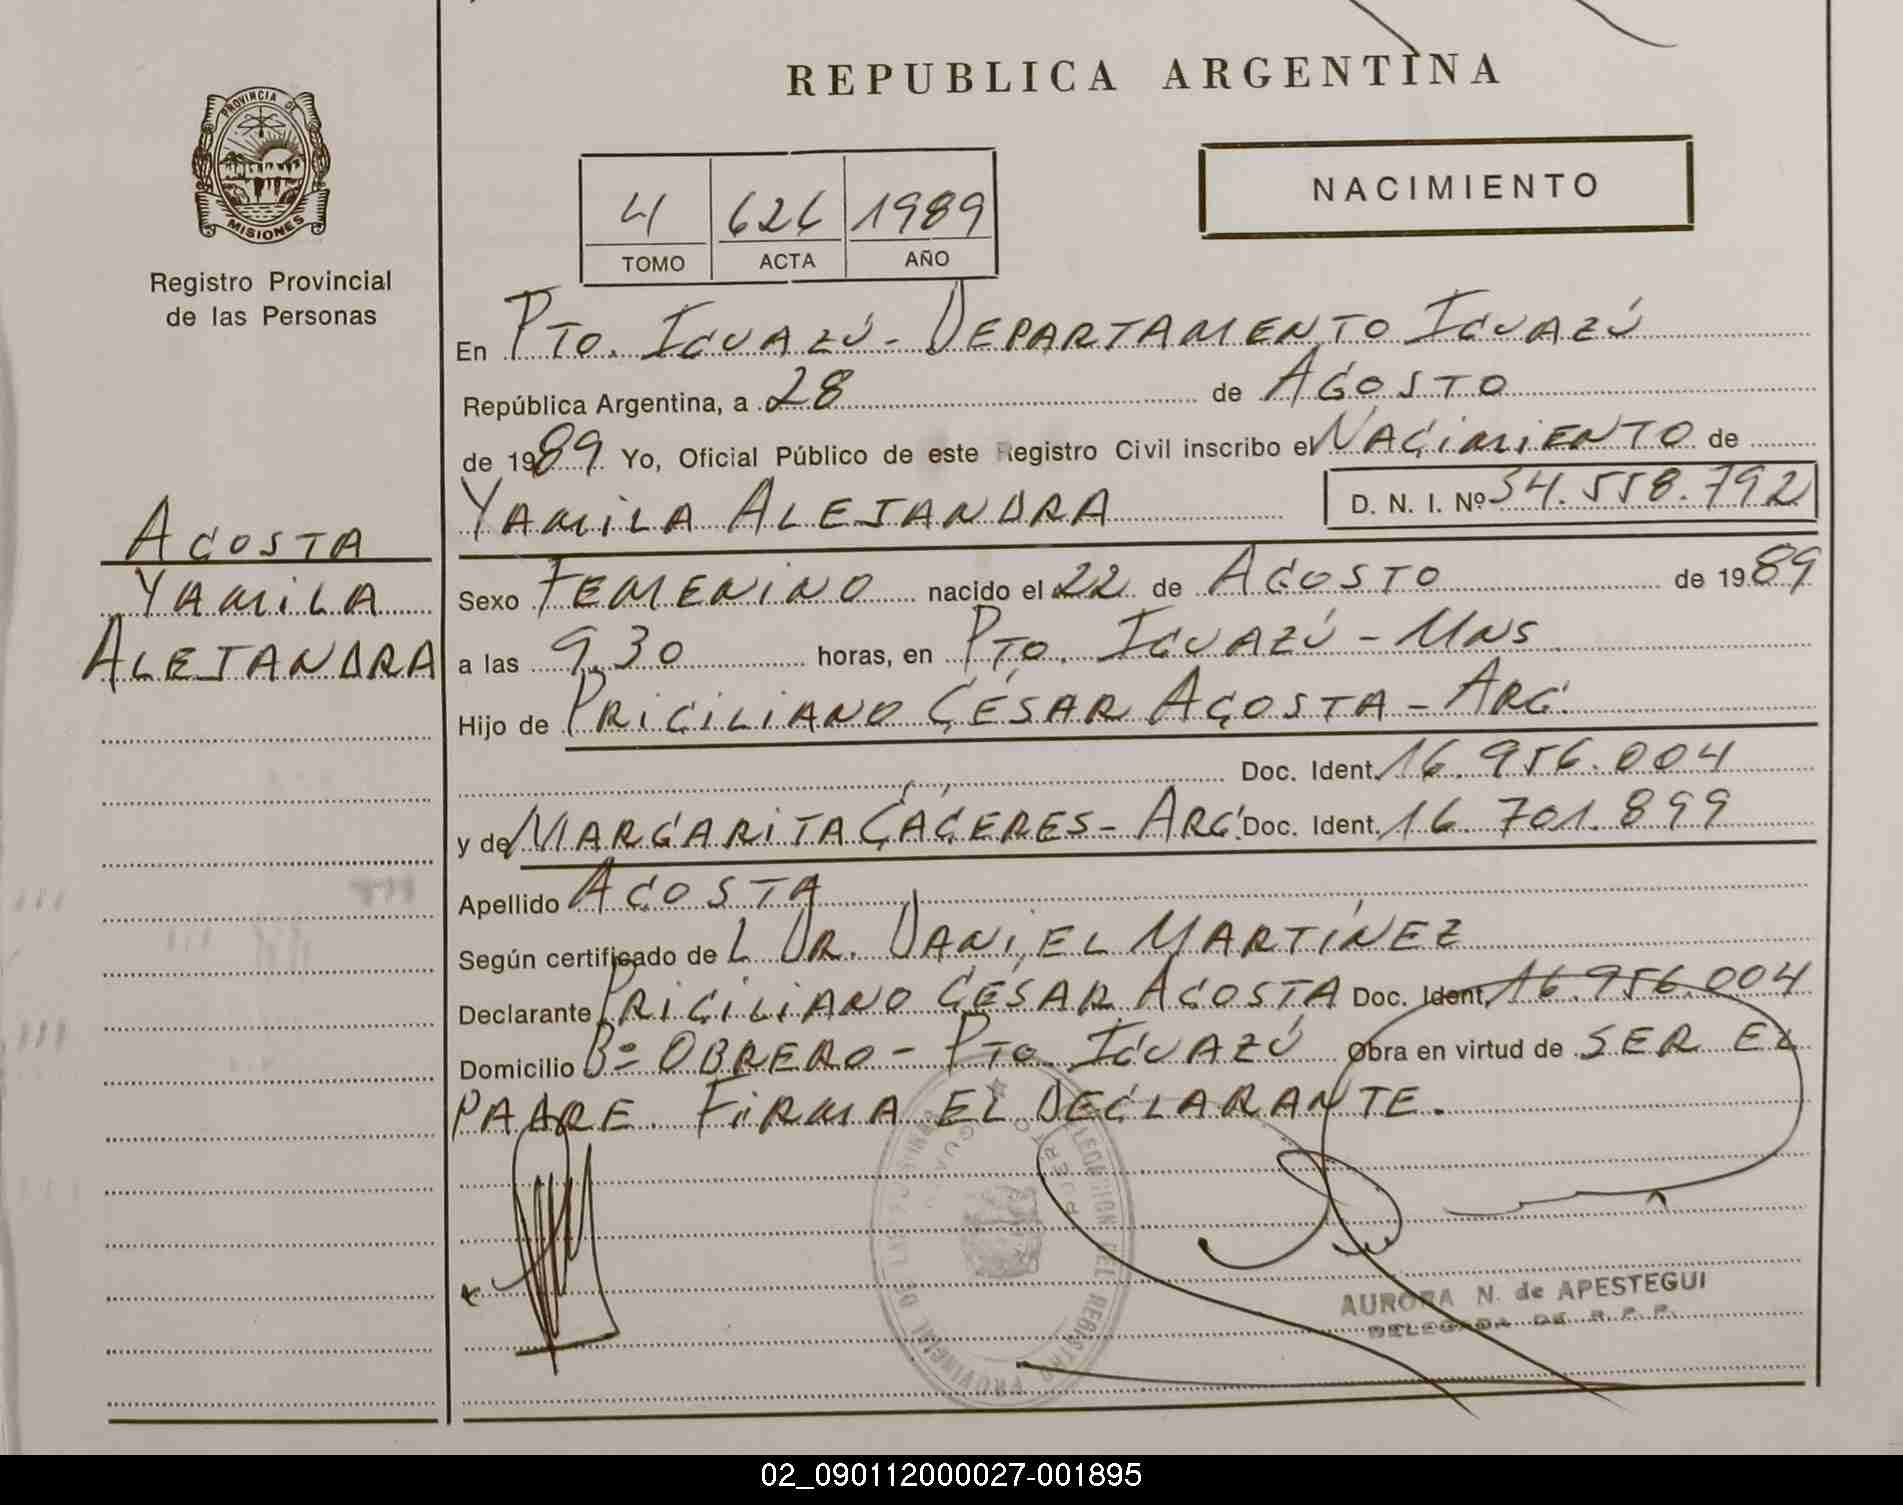 REPUBLICA ARGENTINA
PROVINCIA DE
MISIONES
Registro Provincial
de las Personas
NACIMIENTO
4 626 1989
TOMO ACTA AÑO
En PTO. IGUAZÚ - DEPARTAMENTO IGUAZÚ
República Argentina, a 28 de AGOSTO
de 1989 Yo, Oficial Público de este Registro Civil inscribo el NACIMIENTO de
YAMILA ALEJANDRA D. N. I. Nº 34.558.792
ACOSTA
YAMILA
ALEJANDRA
Sexo FEMENINO nacido el 22 de AGOSTO de 1989
a las 9.30 horas, en PTO. IGUAZÚ - MNS
Hijo de PRICILIANO CÉSAR ACOSTA - ARG.
Doc. Ident. 16.956.004
y de MARGARITA CÁCERES - ARG. Doc. Ident. 16.701.899
Apellido ACOSTA
Según certificado de L DR. DANIEL MARTÍNEZ
Declarante PRICILIANO CÉSAR ACOSTA Doc. Ident. 16.956.004
Domicilio Bº OBRERO - PTO. IGUAZÚ Obra en virtud de SER EL
PADRE. FIRMA EL DECLARANTE.
AURORA N. de APESTEGUI
DELEGADA DE R.P.P.
02_090112000027-001895